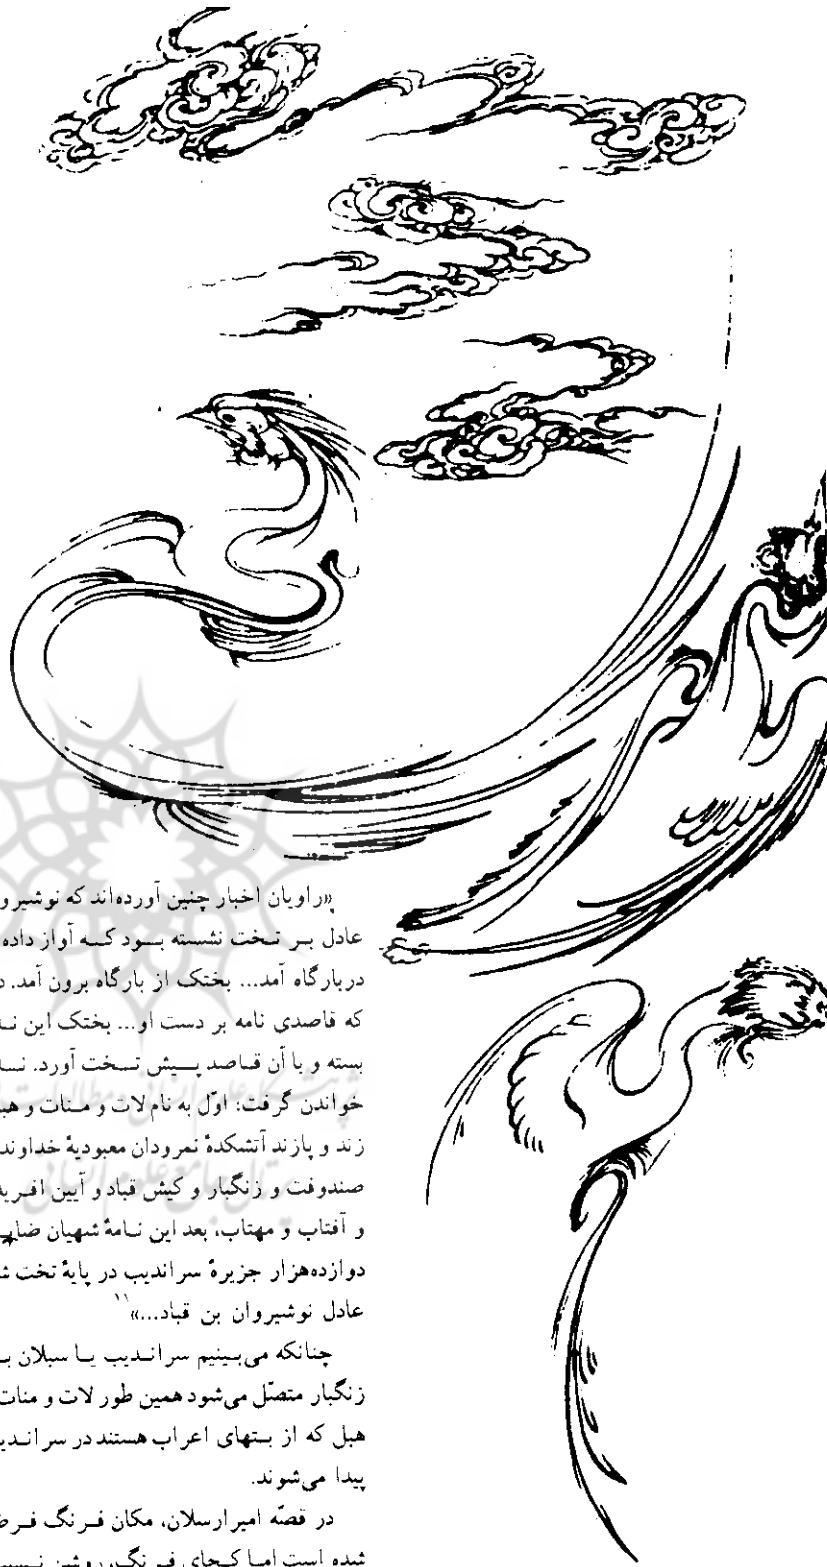 «راویان اخبار چنین آورده‌اند که نوشیرو
عادل بر تخت نشسته بود که آواز داده
دربارگاه آمد... بختک از بارگاه برون آمد. د
که قاصدی نامه بر دست او... بختک این نـ
بسته و با آن قاصد پیش تخت آورد. نسا
خواندن گرفت: اوّل به نام لات و منات و هبـ
زند و پازند آتشکدهٔ نمرودان معبودیهٔ خداوند
صندوفت و زنگبار و کیش قباد و آیین افریـ
و آفتاب و مهتاب، بعد این نامهٔ شهیان
دوازده‌هزار جزیرهٔ سراندیب در پایهٔ تخت شـ
عادل نوشیروان بن قباد...»۱۱
چنانکه می‌بینیم سراندیب یا سبلان بـ
زنگبار متصّل می‌شود همین طور لات و منات
هبل که از بتهای اعراب هستند در سراندیـ
پیدا می‌شوند.
در قصّه امیرارسلان، مکان فرنگ فرض
شده است اما کجای فرنگ، روشن نیست
پژوهشگاه علوم انسانی و مطالعات
پرتال جامع علوم انسانی